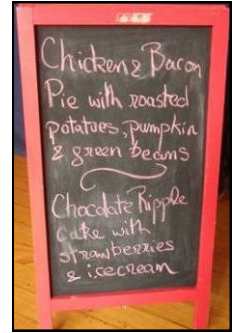 Chicken & Bacon
Pie with roasted
potatoes, pumpkin
& green beans
Chocolate Ripple
cake with
strawberries
& icecream